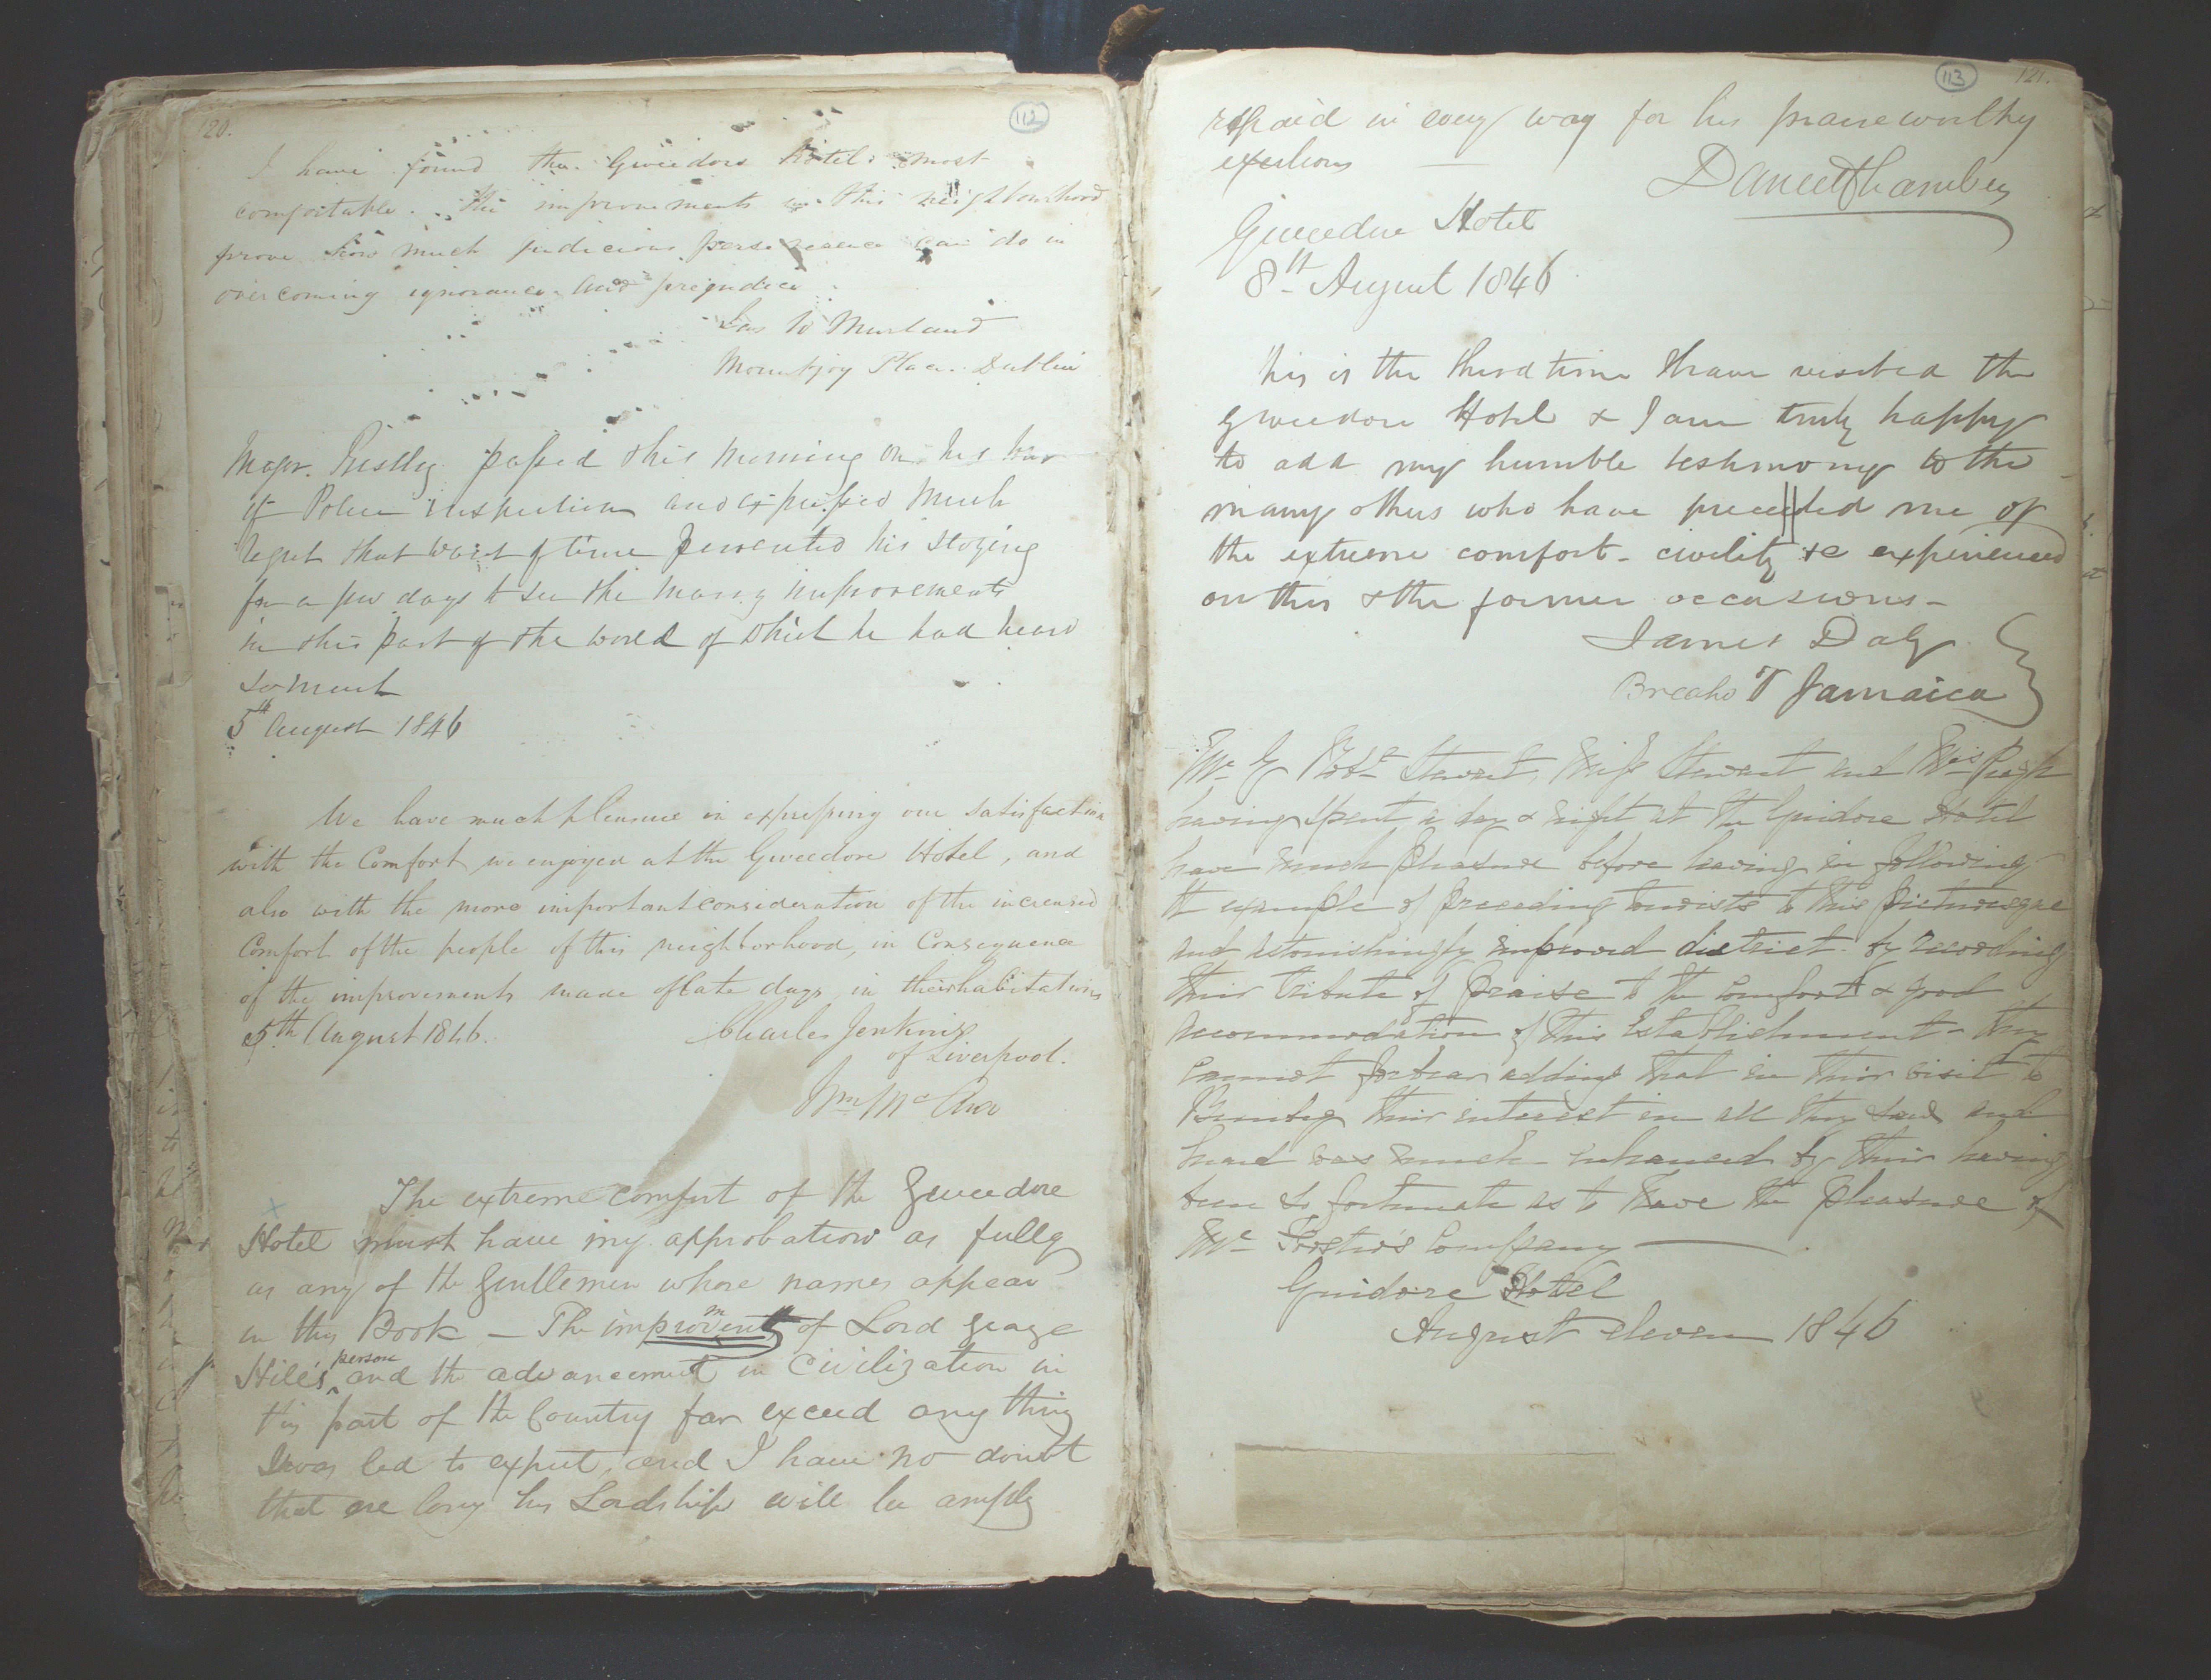 120.
112
I have found the Gweedore Hotel most
comfortable. The improvements in this neighbourhood
prove how much judicious perseverance can do in
overcoming ignorance and prejudice
Jas W Murland
Mountjoy Place. Dublin
Major. Priestly passed this morning on his tour
of Police inspection and expressed much
regret that want of time prevented his staying
for a few days to see the many improvements
in this part of the world of which he had heard
so much
5th August 1846
We have much pleasure in expressing our satisfaction
with the Comfort we enjoyed at the Gweedore Hotel, and
also with the more important consideration of the increased
Comfort of the people of this neighborhood, in Consequence
of the improvements made of late days in their habitations
5th August 1846.
Charles Jenkins
of Liverpool.
Wm Mc
The extreme comfort of the Gweedore
Hotel must have my approbation as fully
as any of the Gentlemen whose names appear
in this Book — The improvements of Lord George
Hill's person and the advancement in Civilization in
this part of the Country far exceed any thing
I was led to expect, and I have no doubt
that ere long his Lordship will be amply
113
121.
repaid in every way for his praiseworthy
exertions —
Daniel Chambers
Gweedore Hotel
8th August 1846
This is the third time I have visited the
Gweedore Hotel & I am truly happy
to add my humble testimony to the
many others who have preceeded me of
the extreme comfort - civility &c experienced
on this & the former occasions -
James Daly
Jamaica
Mr G Robt Stewart, Miss Stewart and
having spent a day & night at the Guidore Hotel
have much pleasure before leaving in following
the example of preceeding tourists to this picturesque
and astonishingly improved district by recording
their tribute of praise to the comfort & good
accommodation of this Establishment - they
cannot forbear adding that in their visit to
Bunbeg their interest in all they saw and
heard was much enhanced by their having
been so fortunate as to have the pleasure of
Mr Forster's Company —
Guidore Hotel
August eleven 1846